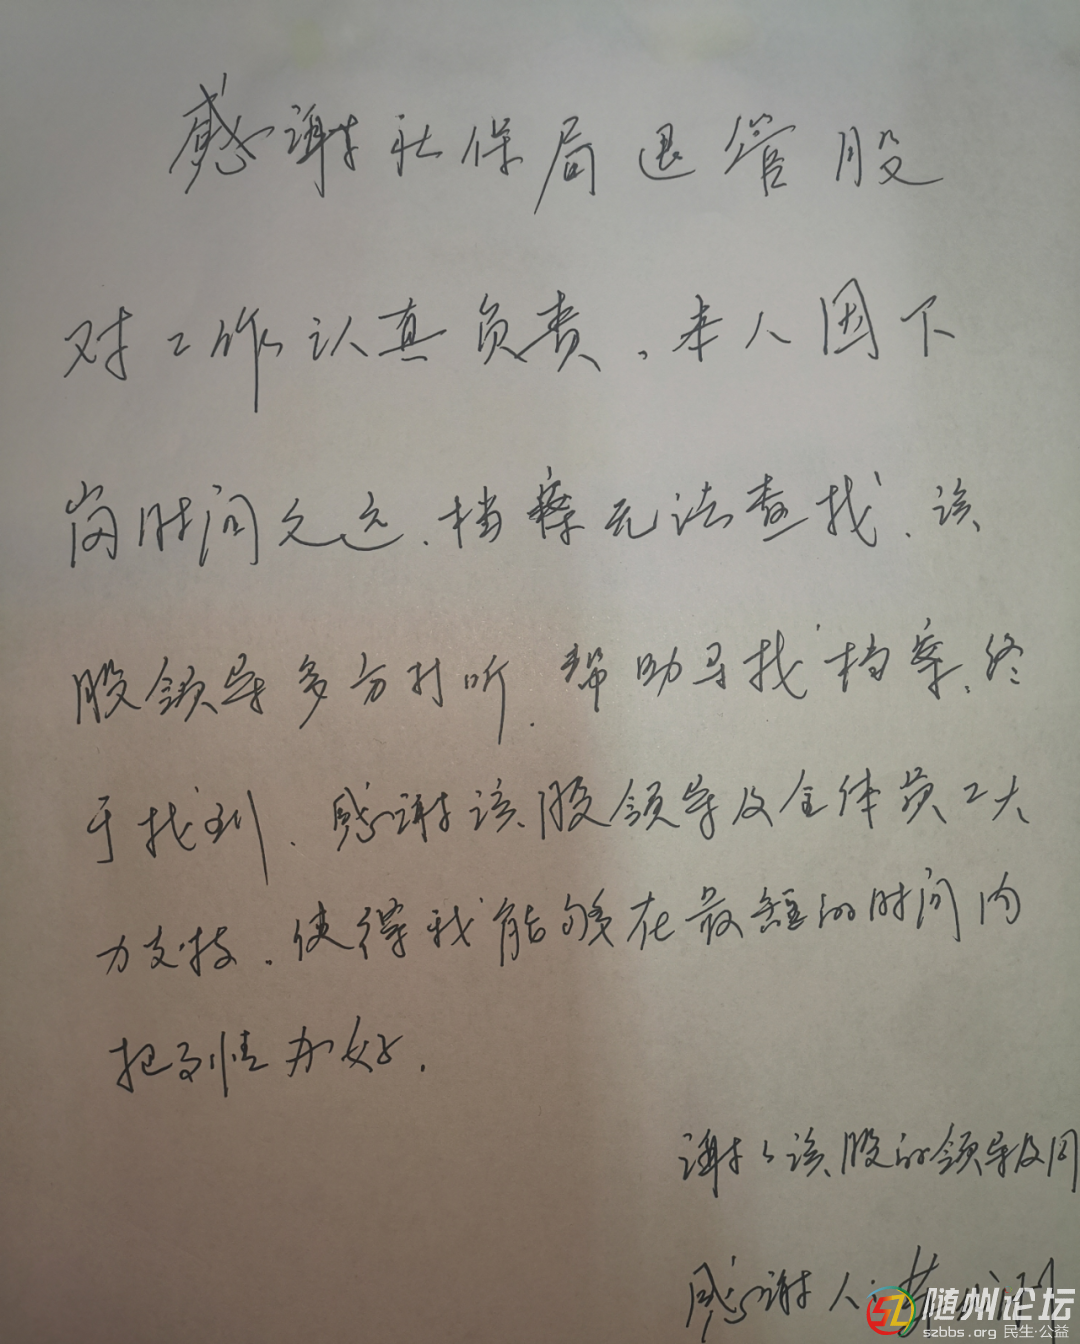 感谢社保局退管股
对工作认真负责,本人因下
岗时间久远,档案无法查找,该
股领导多方打听,帮助寻找档案,终
于找到,感谢该股领导及全体员工大
力支持,使得我能够在最短的时间内
把事情办好.
谢谢该股的领导及同
感谢人:
随州论坛
szbbs.org 民生·公益